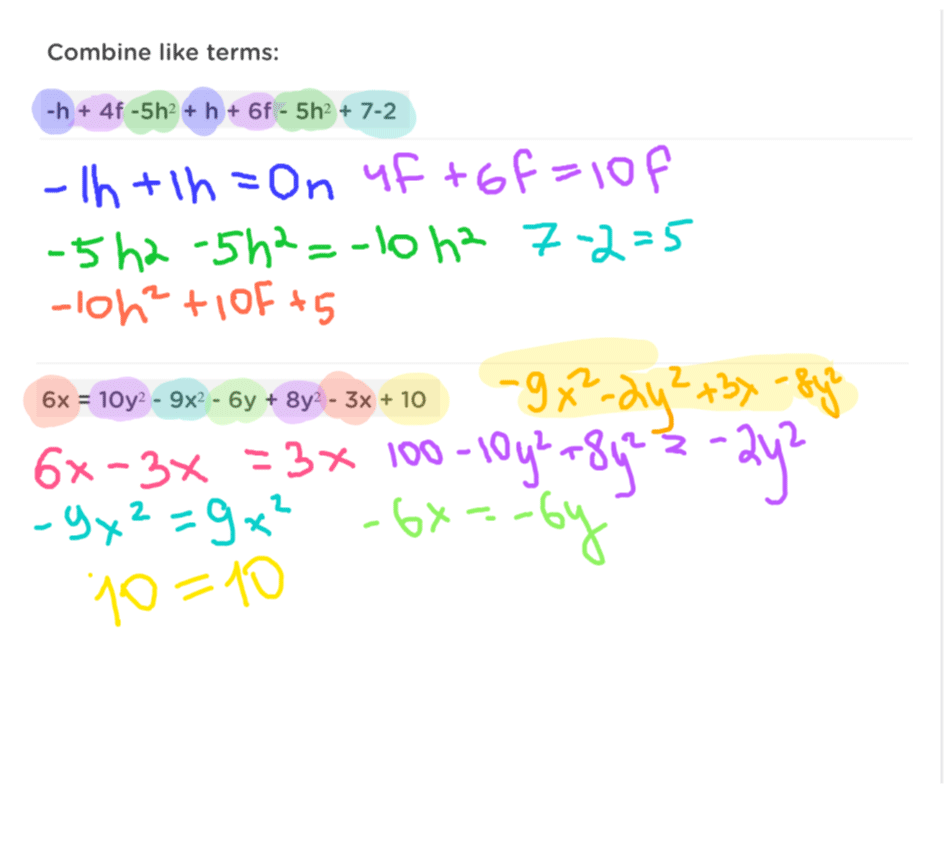 Combine like terms:
-h + 4f -5h² + h + 6f - 5h² + 7-2
-1h +1h =0n 4F +6F=10F
-5h2 -5h²=-10h² 7-2=5
-10h² +10F+5
6x = 10y² - 9x² - 6y + 8y² - 3x + 10
-9x²-2y²+3x -8y²
6x-3x =3x 100-10y²+8y²= -2y²
-9x²=9x² -6x=-6y
10=10